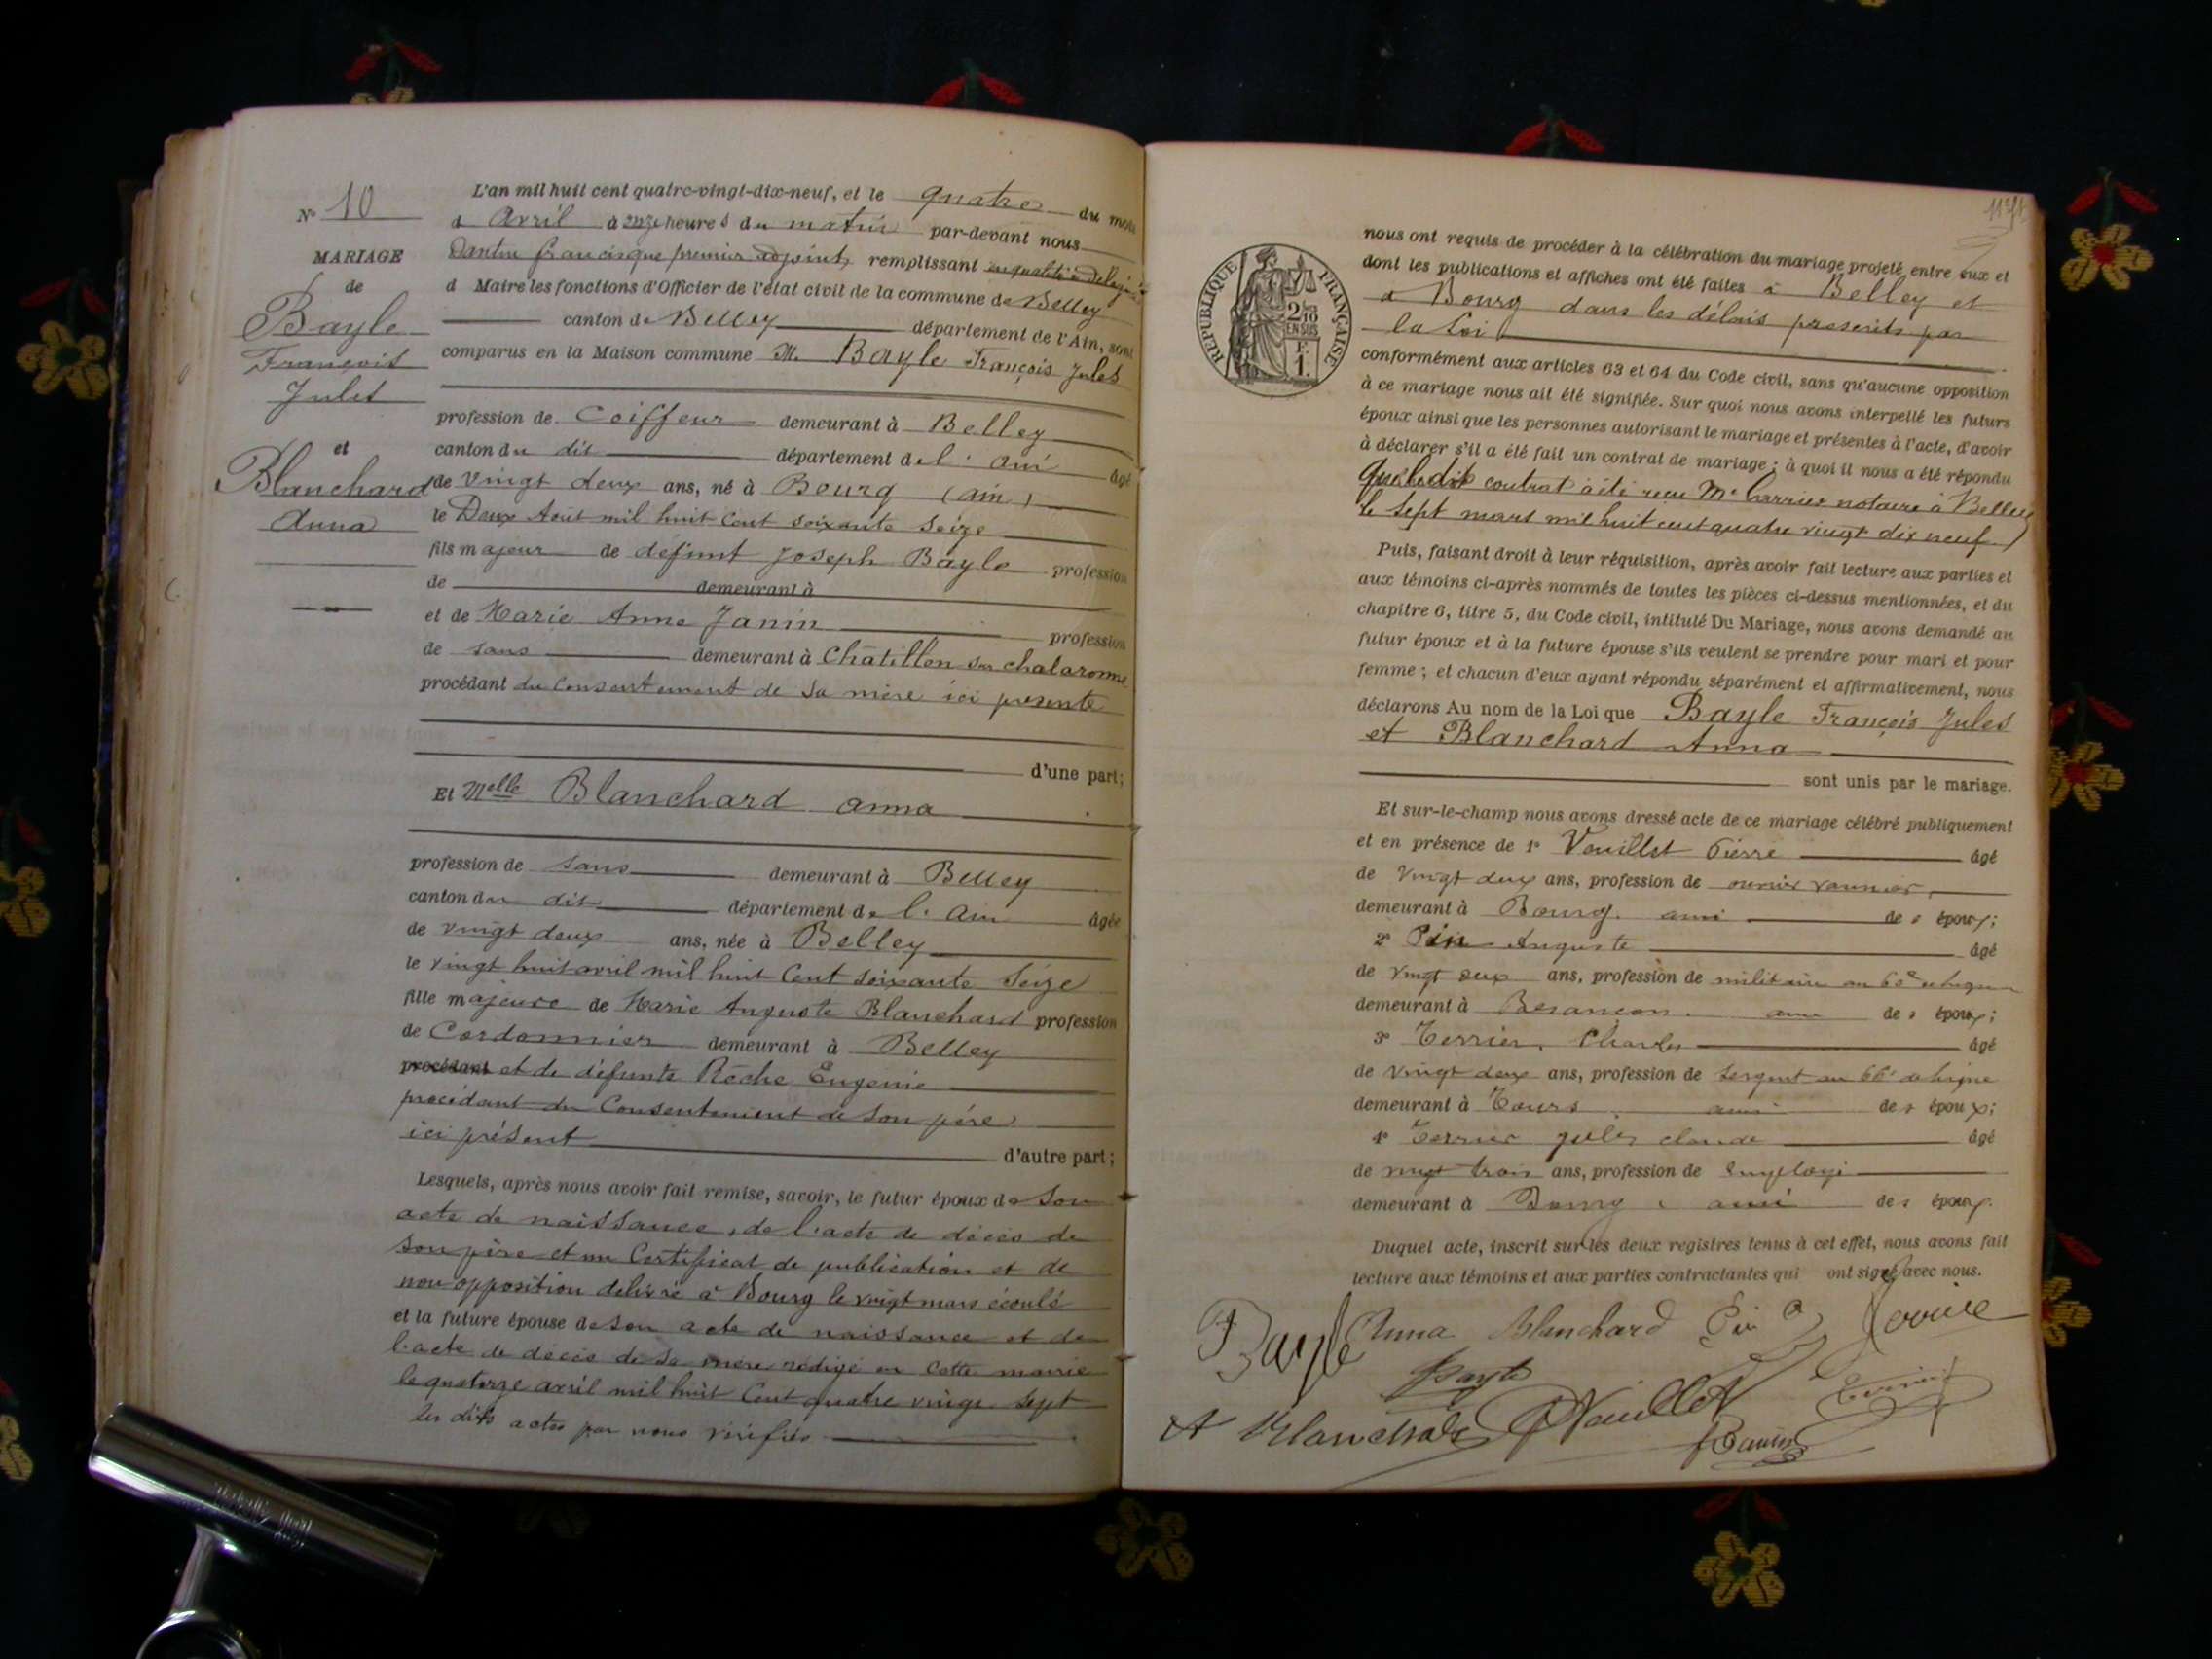 N° 10
MARIAGE
de
Bayle
François
Jules
et
Blanchard
Anna
L'an mil huit cent quatre-vingt-dix-neuf, et le quatre du mois
d Avril à onze heures du matin par-devant nous
Francisque premier adjoint, remplissant en qualité de délégué
d Maire les fonctions d'Officier de l'état civil de la commune de Belley
canton de Belley département de l'Ain, sont
comparus en la Maison commune M. Bayle François Jules
profession de Coiffeur demeurant à Belley
canton du dit département de l'Ain âgé
de vingt deux ans, né à Bourg (Ain)
le Deux Août mil huit cent soixante seize
fils majeur de défunt Joseph Bayle profession
de demeurant à
et de Marie Anne Janin profession
de sans demeurant à Châtillon sur chalaronne
procédant du consentement de sa mère ici présente
d'une part;
Et Melle Blanchard anna
profession de sans demeurant à Belley
canton du dit département de l'Ain âgée
de vingt deux ans, née à Belley
le vingt huit avril mil huit Cent soixante seize
fille majeure de Marie Auguste Blanchard profession
de Cordonnier demeurant à Belley
procédant et de défunte Rêche Eugenie
procédant du Consentement de son père
ici présent d'autre part;
Lesquels, après nous avoir fait remise, savoir, le futur époux de Son
acte de naissance, de l'acte de décès de
son père et un Certificat de publication et de
non opposition délivré à Bourg le vingt mars écoulé
et la future épouse de son acte de naissance et de
l'acte de décès de sa mère rédigé en cette mairie
le quatorze avril mil huit Cent quatre vingt sept
les dits actes par nous vérifiés
RÉPUBLIQUE FRANÇAISE
2/10
EN SUS
F.
1.
nous ont requis de procéder à la célébration du mariage projeté entre eux et
dont les publications et affiches ont été faites à Belley et
à Bourg dans les délais prescrits par
la Loi
conformément aux articles 63 et 64 du Code civil, sans qu'aucune opposition
à ce mariage nous ait été signifiée. Sur quoi nous avons interpellé les futurs
époux ainsi que les personnes autorisant le mariage et présentes à l'acte, d'avoir
à déclarer s'il a été fait un contrat de mariage; à quoi il nous a été répondu
que ledit contrat a été reçu Me notaire à Belley
le sept mars mil huit cent quatre vingt dix neuf
Puis, faisant droit à leur réquisition, après avoir fait lecture aux parties et
aux témoins ci-après nommés de toutes les pièces ci-dessus mentionnées, et du
chapitre 6, titre 5, du Code civil, intitulé Du Mariage, nous avons demandé au
futur époux et à la future épouse s'ils veulent se prendre pour mari et pour
femme; et chacun d'eux ayant répondu séparément et affirmativement, nous
déclarons Au nom de la Loi que Bayle François Jules
et Blanchard Anna
sont unis par le mariage.
Et sur-le-champ nous avons dressé acte de ce mariage célébré publiquement
et en présence de 1° Vouillet Pierre âgé
de vingt deux ans, profession de ouvrier vannier,
demeurant à Bourg. ami de s époux;
2° Pin Auguste âgé
de vingt deux ans, profession de militaire au
demeurant à Besancon. ami de s époux;
3° Terrier, Charles âgé
de vingt deux ans, profession de sergent au 66e de ligne
demeurant à Tours. ami de s époux;
4° Terrier jules claude âgé
de vingt trois ans, profession de Employé
demeurant à Bourg, ami de s époux.
Duquel acte, inscrit sur les deux registres tenus à cet effet, nous avons fait
lecture aux témoins et aux parties contractantes qui ont signé avec nous.
Bayle Anna Blanchard Pin A
Bayle Terrier
A Blanchard P Vouillet